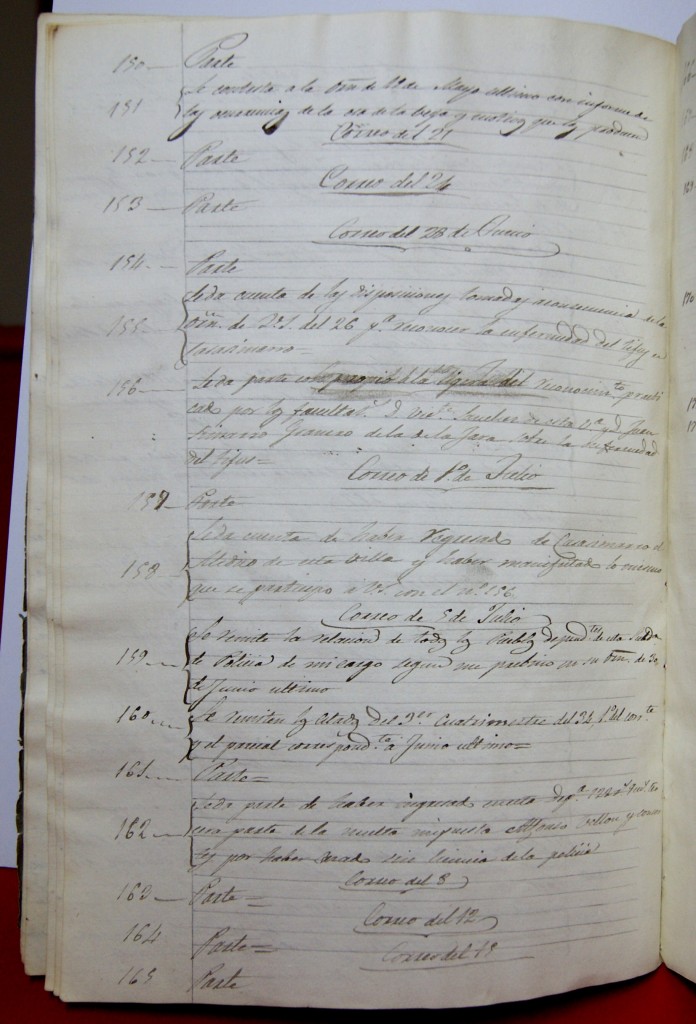 150 — Parte
151 Se contesta a la Orn de 12 de Mayo ultimo con informe de
las ocurrencias de la de la y motivos que las producen
Correo del 21
152 — Parte
Correo del 24
153 — Parte
Correo del 28 de Junio
154 — Parte
155 — Se da cuenta de las disposiciones tomadas a consecuencia de la
Orn. de V.S. del 26 pª reconocer la enfermedad del tifus en
Casasimarro —
156 — Se da parte del reconocimto practi
cado por los facultats D. Victe Sanchez de esta Vª y D. Juan
de la de la Jara sobre la enfermedad
del tifus =
Correo de 1º de Julio
157 — Parte
158 — Se da cuenta de haber regresado de Casasimarro el
Medico de esta Villa y haber manifestado lo mismo
que se participó a V.S. con el nº 156
Correo de 5 de Julio
159 — Se remite la relacion de todos los Pueblos dependtes de la
de Policia de mi cargo segun me previno en su Orn. de 30
de Junio ultimo
160 — Se remiten los Estados del 3er Cuatrimestre del 34, 1º del corrte
y el parcial correspondte a Junio ultimo =
161 — Parte =
162 — Se da parte de haber ingresado en esta 128
cera parte de la multa impuesta Alfonso y
por haber sin licencia de la policia
Correo del 8
163 — Parte =
Correo del 12
164 Parte =
Correo del 15
165 Parte